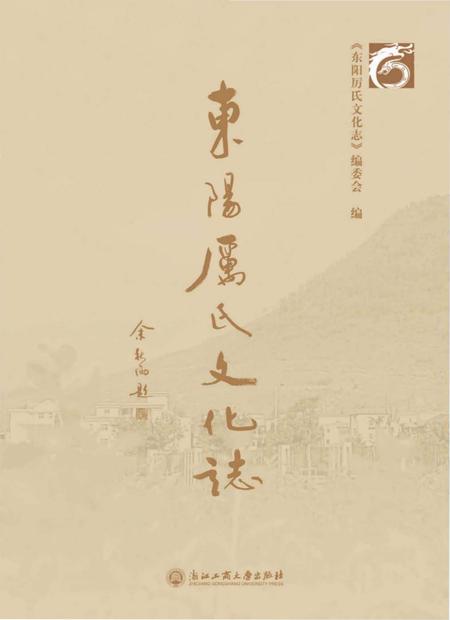 《东阳厉氏文化志》编委会 编
東陽厲氏文化誌
余秋雨題
浙江工商大學出版社
ZHEJIANG GONGSHANG UNIVERSITY PRESS